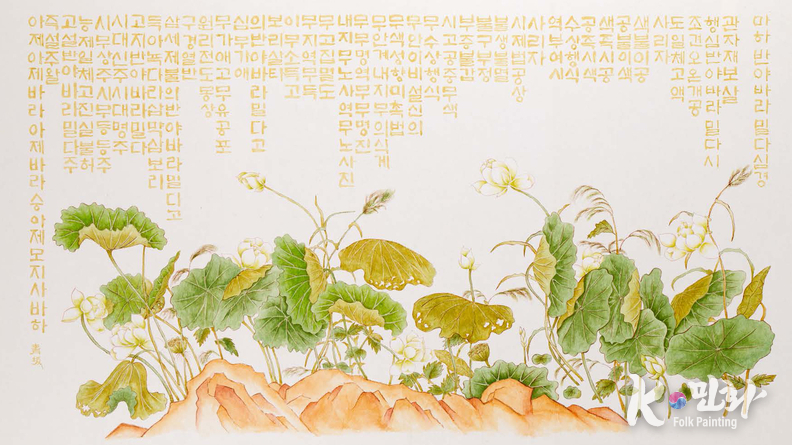 마하반야바라밀다심경
관자재보살
행심반야바라밀다시
조견오온개공
도일체고액
사리자
색불이공
공불이색
색즉시공
공즉시색
수상행식
역부여시
사리자
시제법공상
불생불멸
불구부정
부증불감
시고공중무색
무수상행식
무안이비설신의
무색성향미촉법
무안계내지무의식계
무무명역무무명진
내지무노사역무노사진
무고집멸도
무지역무득
이무소득고
보리살타
의반야바라밀다고
심무가애
무가애고무유공포
원리전도몽상
구경열반
삼세제불의반야바라밀다고
득아녹다라삼막삼보리
고지반야바라밀다
시대신주시대명주
시무상주시무등등주
능제일체고진실불허
고설반야바라밀다주
즉설주왈
아제아제바라아제바라승아제모지사바하
K민화
Folk Painting